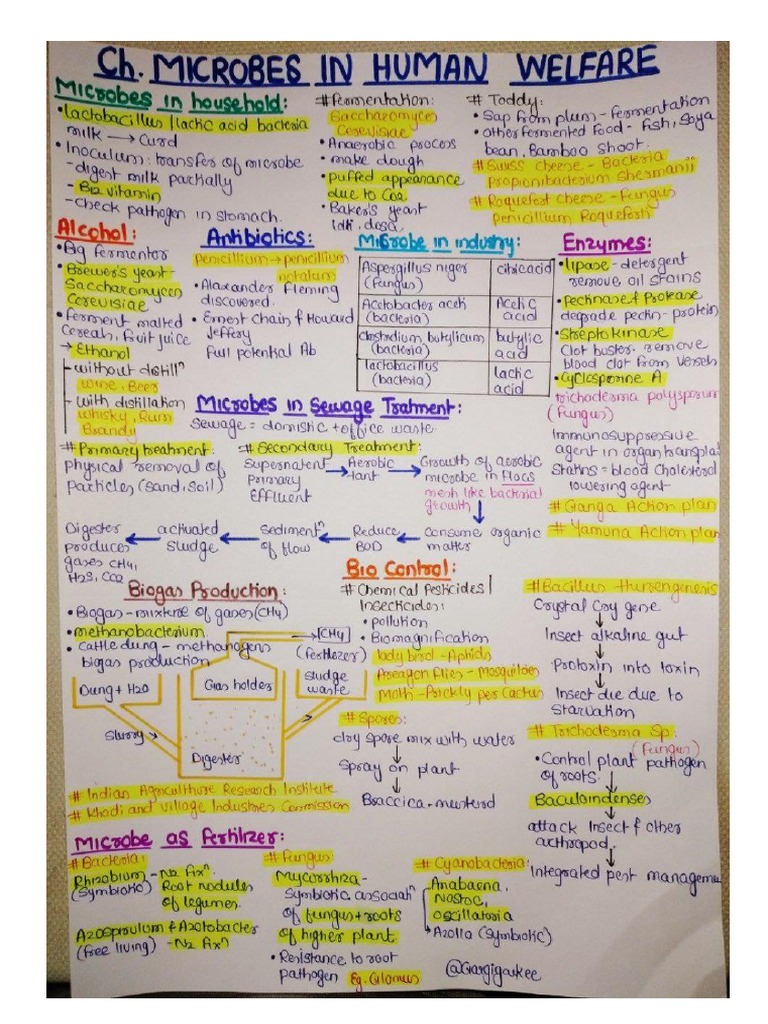 Ch. MICROBES IN HUMAN WELFARE
Microbes in household:
• lactobacillus / lactic acid bacteria
milk → Curd
• Inoculum: transfer of microbe
- digest milk partially
- B12 vitamin
- check pathogen in stomach.
# Fermentation:
Saccharomyces
Cerevisiae
• Anaerobic process
• make dough
• puffed appearance
due to CO2
• Baker's yeast
idli, dosa.
# Toddy:
• Sap from plum - fermentation
• other fermented food - fish, Soya
bean, Bamboo shoot.
# Swiss cheese - Bacteria
Propionibacterium Shermanii
# Roquefost cheese - Fungus
penicillium Roqueforti
Alcohol:
• Big fermentor
• Brewer's yeast-
Saccharomyces
Cerevisiae
• Ferment malted
Cereals, fruit juice
→ Ethanol
- without distillⁿ
Wine, Beer
- With distillation
whisky, Rum
Brandy
Antibiotics:
Penicillium → penicillium
notatum
• Alaxander Fleming
discovered.
• Ernest Chain & Howard
Jeffery
Full potential Ab
Microbe in industry:
Aspergillus niger citric acid
(fungus)
Acetobacter aceti Acetic
(bacteria) acid
clostridium butylicum butylic
(bacteria) acid
lactobacillus lactic
(bacteria) acid
Enzymes:
• lipase - detergent
remove oil stains
• Pechinase & Protease
degrade pectin - protein
• Streptokinase
Clot buster - remove
blood clot from vessels
• Cyclosporine A
trichoderma polysporum
(fungus)
Immunosuppressive
agent in organ transplat
Statins = blood Cholesterol
lowering agent
# Ganga Action plan
# Yamuna Action plan
Microbes in Sewage Tratment:
Sewage = domistic + office waste
# Primary treatment:
physical removal of
Particles (Sand, Soil)
# Secondary Treatment:
Supernatent → Aerobic → Growth of aerobic
Primary tant microbe in Flocs
Effluent mesh like bacterial
growth
Digester ← activated ← Sediment ⁿ ← Reduce ← consume organic
produces sludge of flow BOD matter
gases CH4,
H2S, CO2
Biogas Production:
• Biogas - mixture of gases (CH4)
• methanobacterium.
• cattle dung - methanogens
biogas production
→ CH4
(fertilozer)
Dung + H2O
Gas holder
sludge
waste
Slurry
Digester
# Indian Agriculthure Research Institute
# Khadi and village Industries Commission
Bio Control:
# Chemical Pesticides /
Insecticides:
• pollution
• Biomagnification
lady bird - Aphids
Areagon flies - Mosquitoes
Moth - Prickly per Cactus
# Spores:
dry spore mix with water
Spray on plant
Braccica - musterd
# Bacillus thursengenesis
Crystal Cry gene
Insect alkaline gut
Protoxin into toxin
Insect die due to
Starvation
# Trichoderma Sp.
(Fungus)
• Control plant pathogen
of roots.
Baculoindenses
attack Insect & other
arthropod.
Integrated pest manageme
Microbe as fertilizer:
# Bacteria:
Rhizobium - N2 fixⁿ
(Symbiotic) Root nodules
of legumes.
Azosprulum & Azotobacter
(free living) - N2 fixⁿ
# Fungus:
Mycorrhiza -
Symbiotic associatⁿ
of fungus + roots
of higher plant
• Resistance to root
pathogen Eg. Glomus
# Cyanobacteria:
Anabaena,
Nostoc,
oscillatoria
→ Azolla (symbiotic)
@Gargigaukee